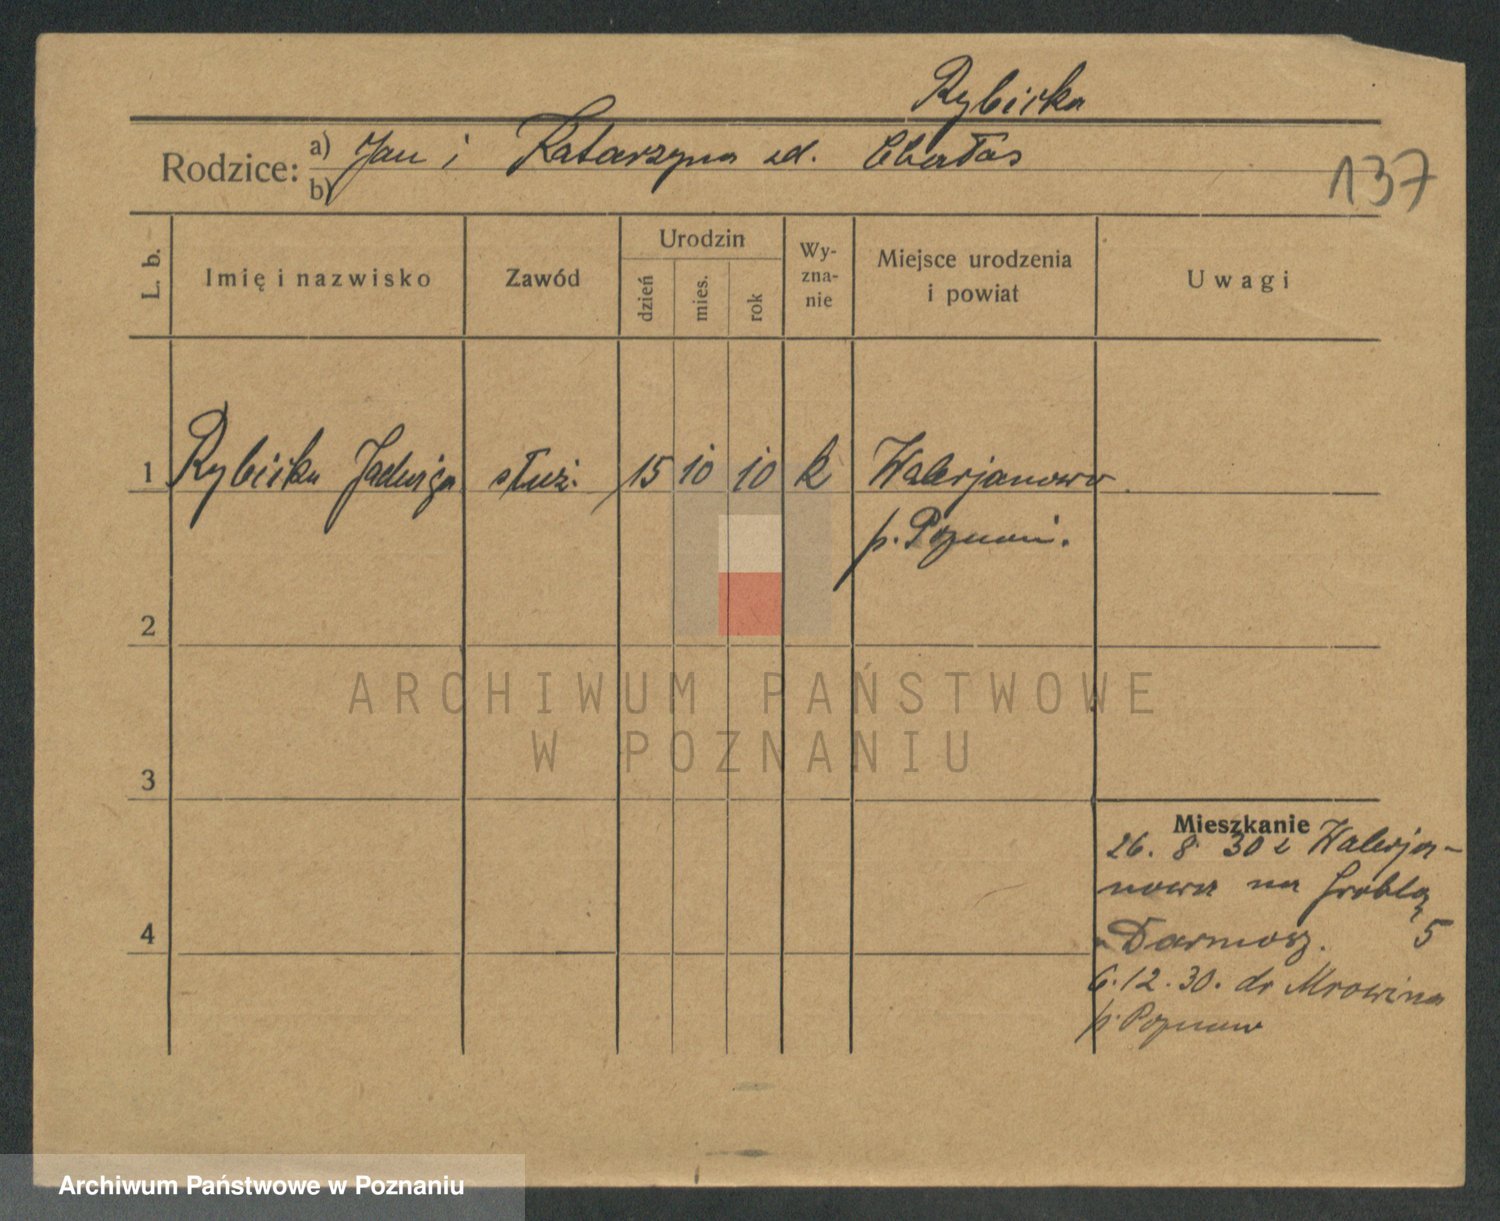 Rybicka
Rodzice: a) Jan i Katarzyna zd.
b)
137
L. b.
Imię i nazwisko
Zawód
Urodzin
dzień
mies.
rok
Wy-
zna-
nie
Miejsce urodzenia
i powiat
Uwagi
1 Rybicka Jadwiga służ. 15 10 10 k Walerjanowo
p. Poznań.
2
ARCHIWUM PAŃSTWOWE
W POZNANIU
3
Mieszkanie
26. 8 30 z Walerja-
nowa na Groblą
5
4
6.12.30. do Mrowina
p. Poznań
Archiwum Państwowe w Poznaniu